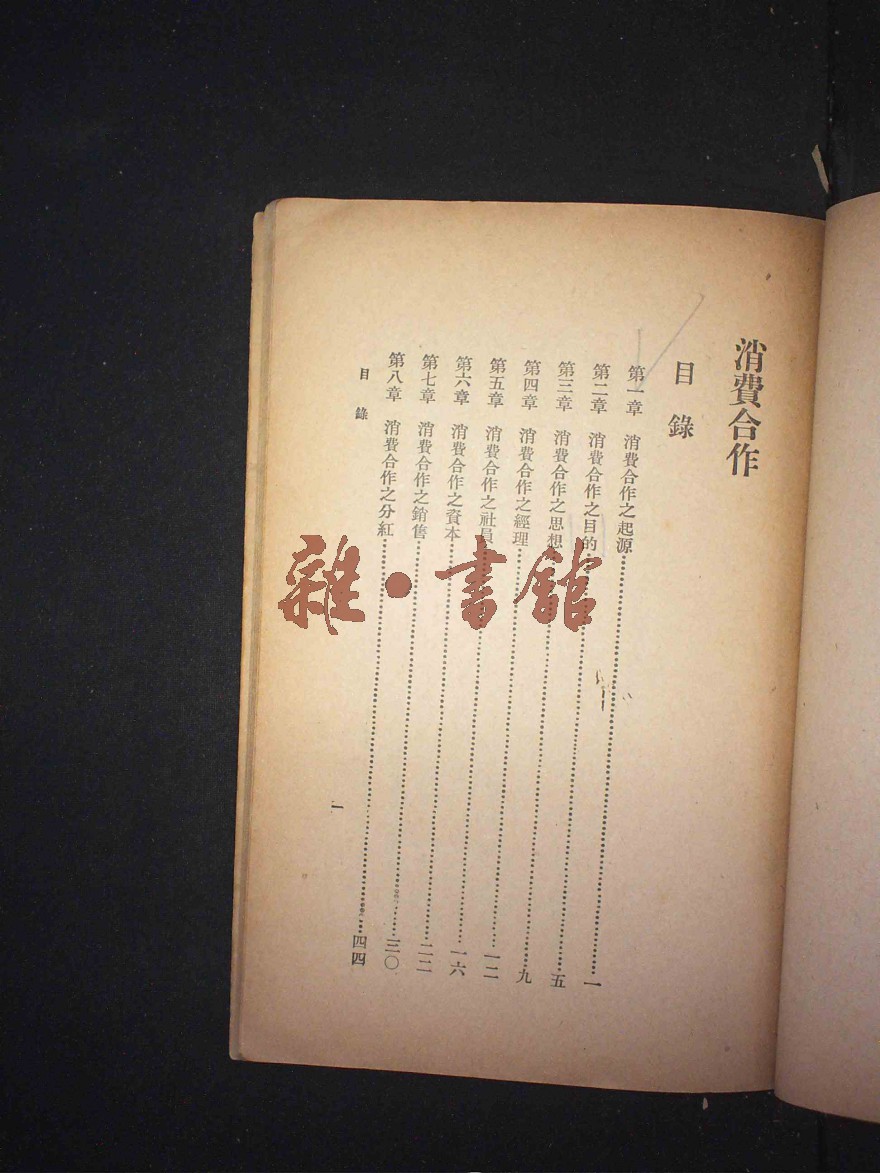 消費合作
目錄
第一章 消費合作之起源……一
第二章 消費合作之目的……五
第三章 消費合作之思想……九
第四章 消費合作之經理……一二
第五章 消費合作之社員……一六
第六章 消費合作之資本……二二
第七章 消費合作之銷售……三〇
第八章 消費合作之分紅……四四
目錄
一
雜·書館